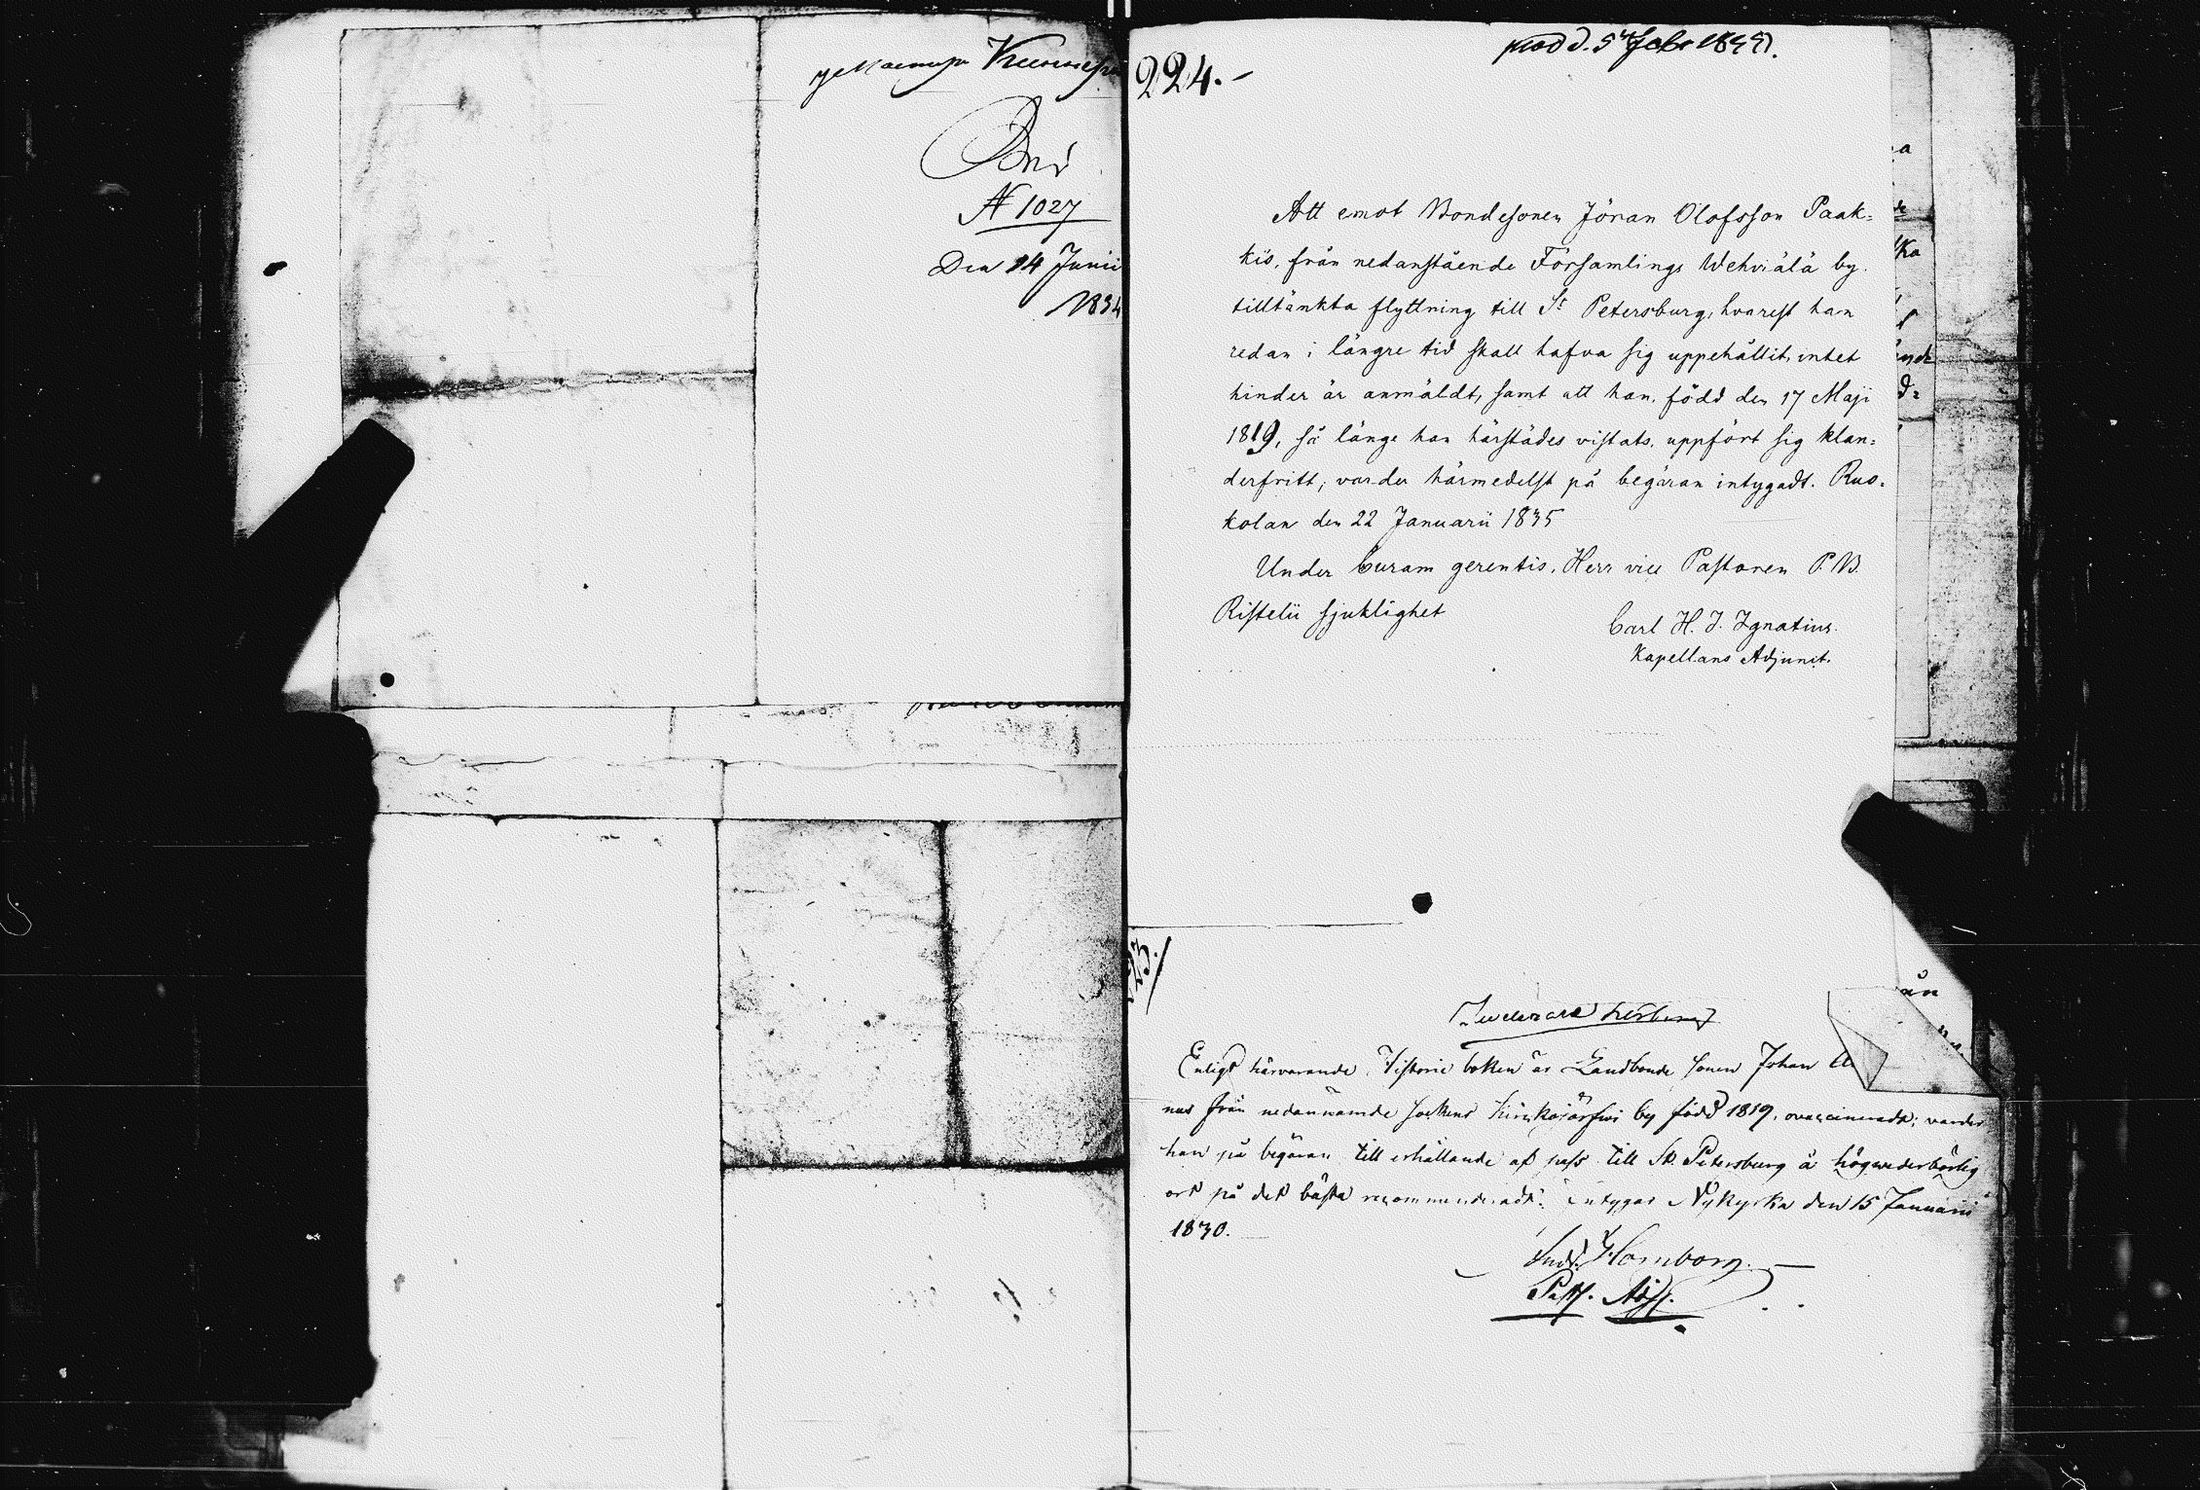 Den 14 Junii
1834
N 1027
224.-
prod d. 5 Febr 1835.
Att emot Bondesonen Jöran Olofsson Paak-
kis, från nedanstående Församlings Wehviälä by
tilltänkta flyttning till St Petersburg, hvarest han
redan i längre tid skall hafva sig uppehållit, intet
hinder är anmäldt, samt att han, född den 17 Maji
1819, så länge han härstädes vistats, uppfört sig klan-
derfritt; varder härmedelst på begäran intygadt. Ruo-
kolax den 22 Januarii 1835
Under Curam gerentis, Herr vice Pastoren P.W.
Ristelii sjuklighet
Carl H. J. Ignatius.
Kapellans Adjunct.
223.
Enligt härvarande Historie boken är Landbonde sonen Johan
nus från nedannämde sockens Kirkojärfwi by född 1819, ovaccinerade; varder
han på begäran till erhållande af pass till St. Petersburg å högwederbörlig
ort på det bästa recommenderadt. Intygar Nykyrka den 15 Januarii
1830.
Homborg.
Past. Adj.